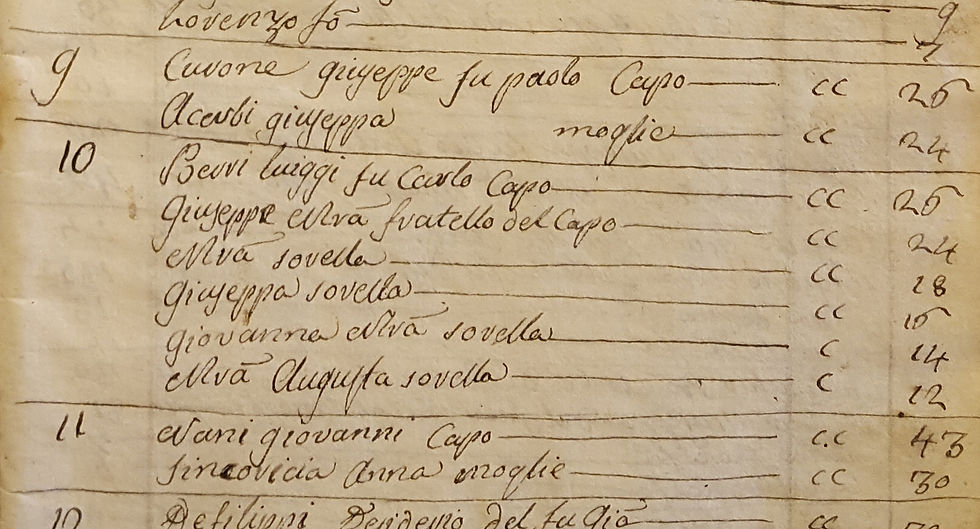 Lorenzo fo 9
7
9 Cavone giuseppe fu paolo Capo cc 26
Acerbi giuseppa moglie cc 24
10 Berri luiggi fu Carlo Capo cc 26
giuseppe Mra fratello del Capo cc 24
Mra sorella cc 18
giuseppa sorella cc 16
giovanna Mra sorella c 14
Mra Augusta sorella c 12
11 Nani giovanni Capo c.c 43
Sincovicia Anna moglie cc 30
12 Defilippi Desiderio del fu Gio cc